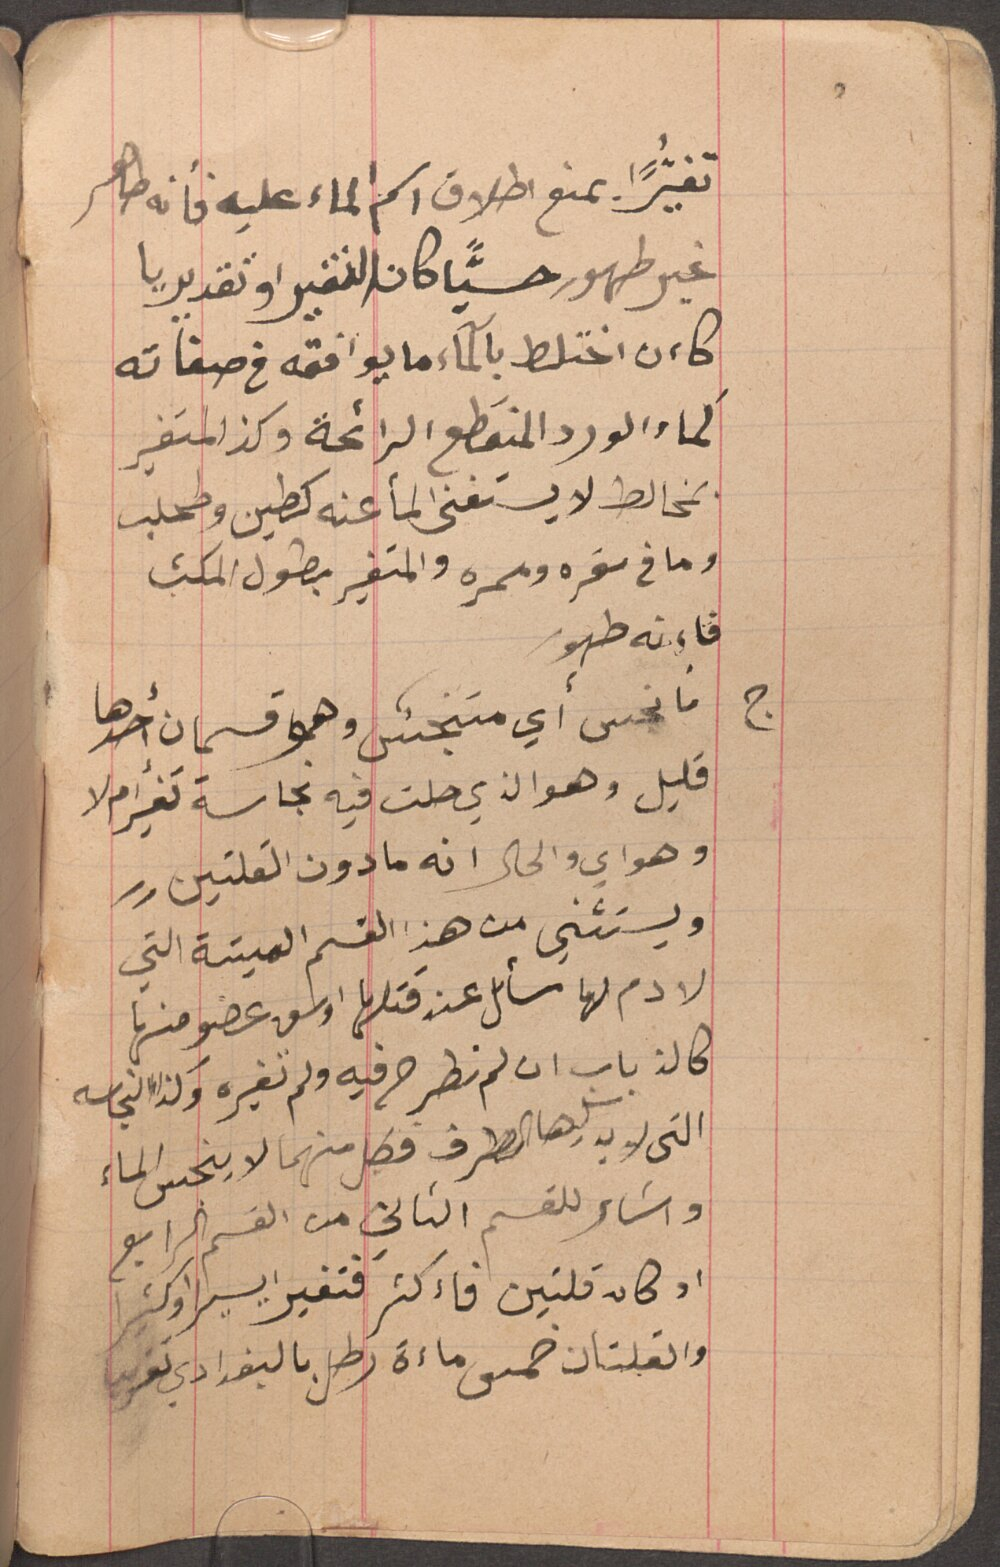 تغيُّرًا يمنع اطلاق اسم الماء عليه فأنه طاهر
غير طهور حسيًّا كان التغير او تقديريا
كاءن اختلط بالمآء ما يوافقه في صفاته
كماء الورد المنقطع الرائحة وكذ المتغير
بمخالط لا يستغنى المأ عنه كطين وطحلب
وما في مقره وممره والمتغير بطول المكث
فاءنه طهور
ج ماء نجس أي متنجس وهو قسمان أحدها
قليل وهو الذي حلت فيه نجاسة تغير أم لا
وهو اي والحال انه ما دون القلتين
ويستثني من هذ القسم الميتة التي
لا دم لها سأىل عند قتلها او شق عضو منها
كالذباب ان لم تطرح فيه ولم تغيره وكذا النجاسه
التى لا يدركها الطرف فكل منهما لا ينجس الماء
واشار للقسم الثاني من القسم الرابع
او كان قلتين فاءكثر فتغير يسيرا او كثيرا
والقلتان خمس ماءة رطل بالبغدادي تقريبا